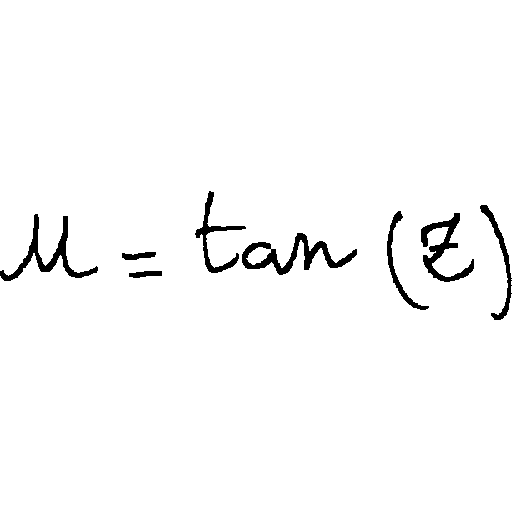 u = tan (z)